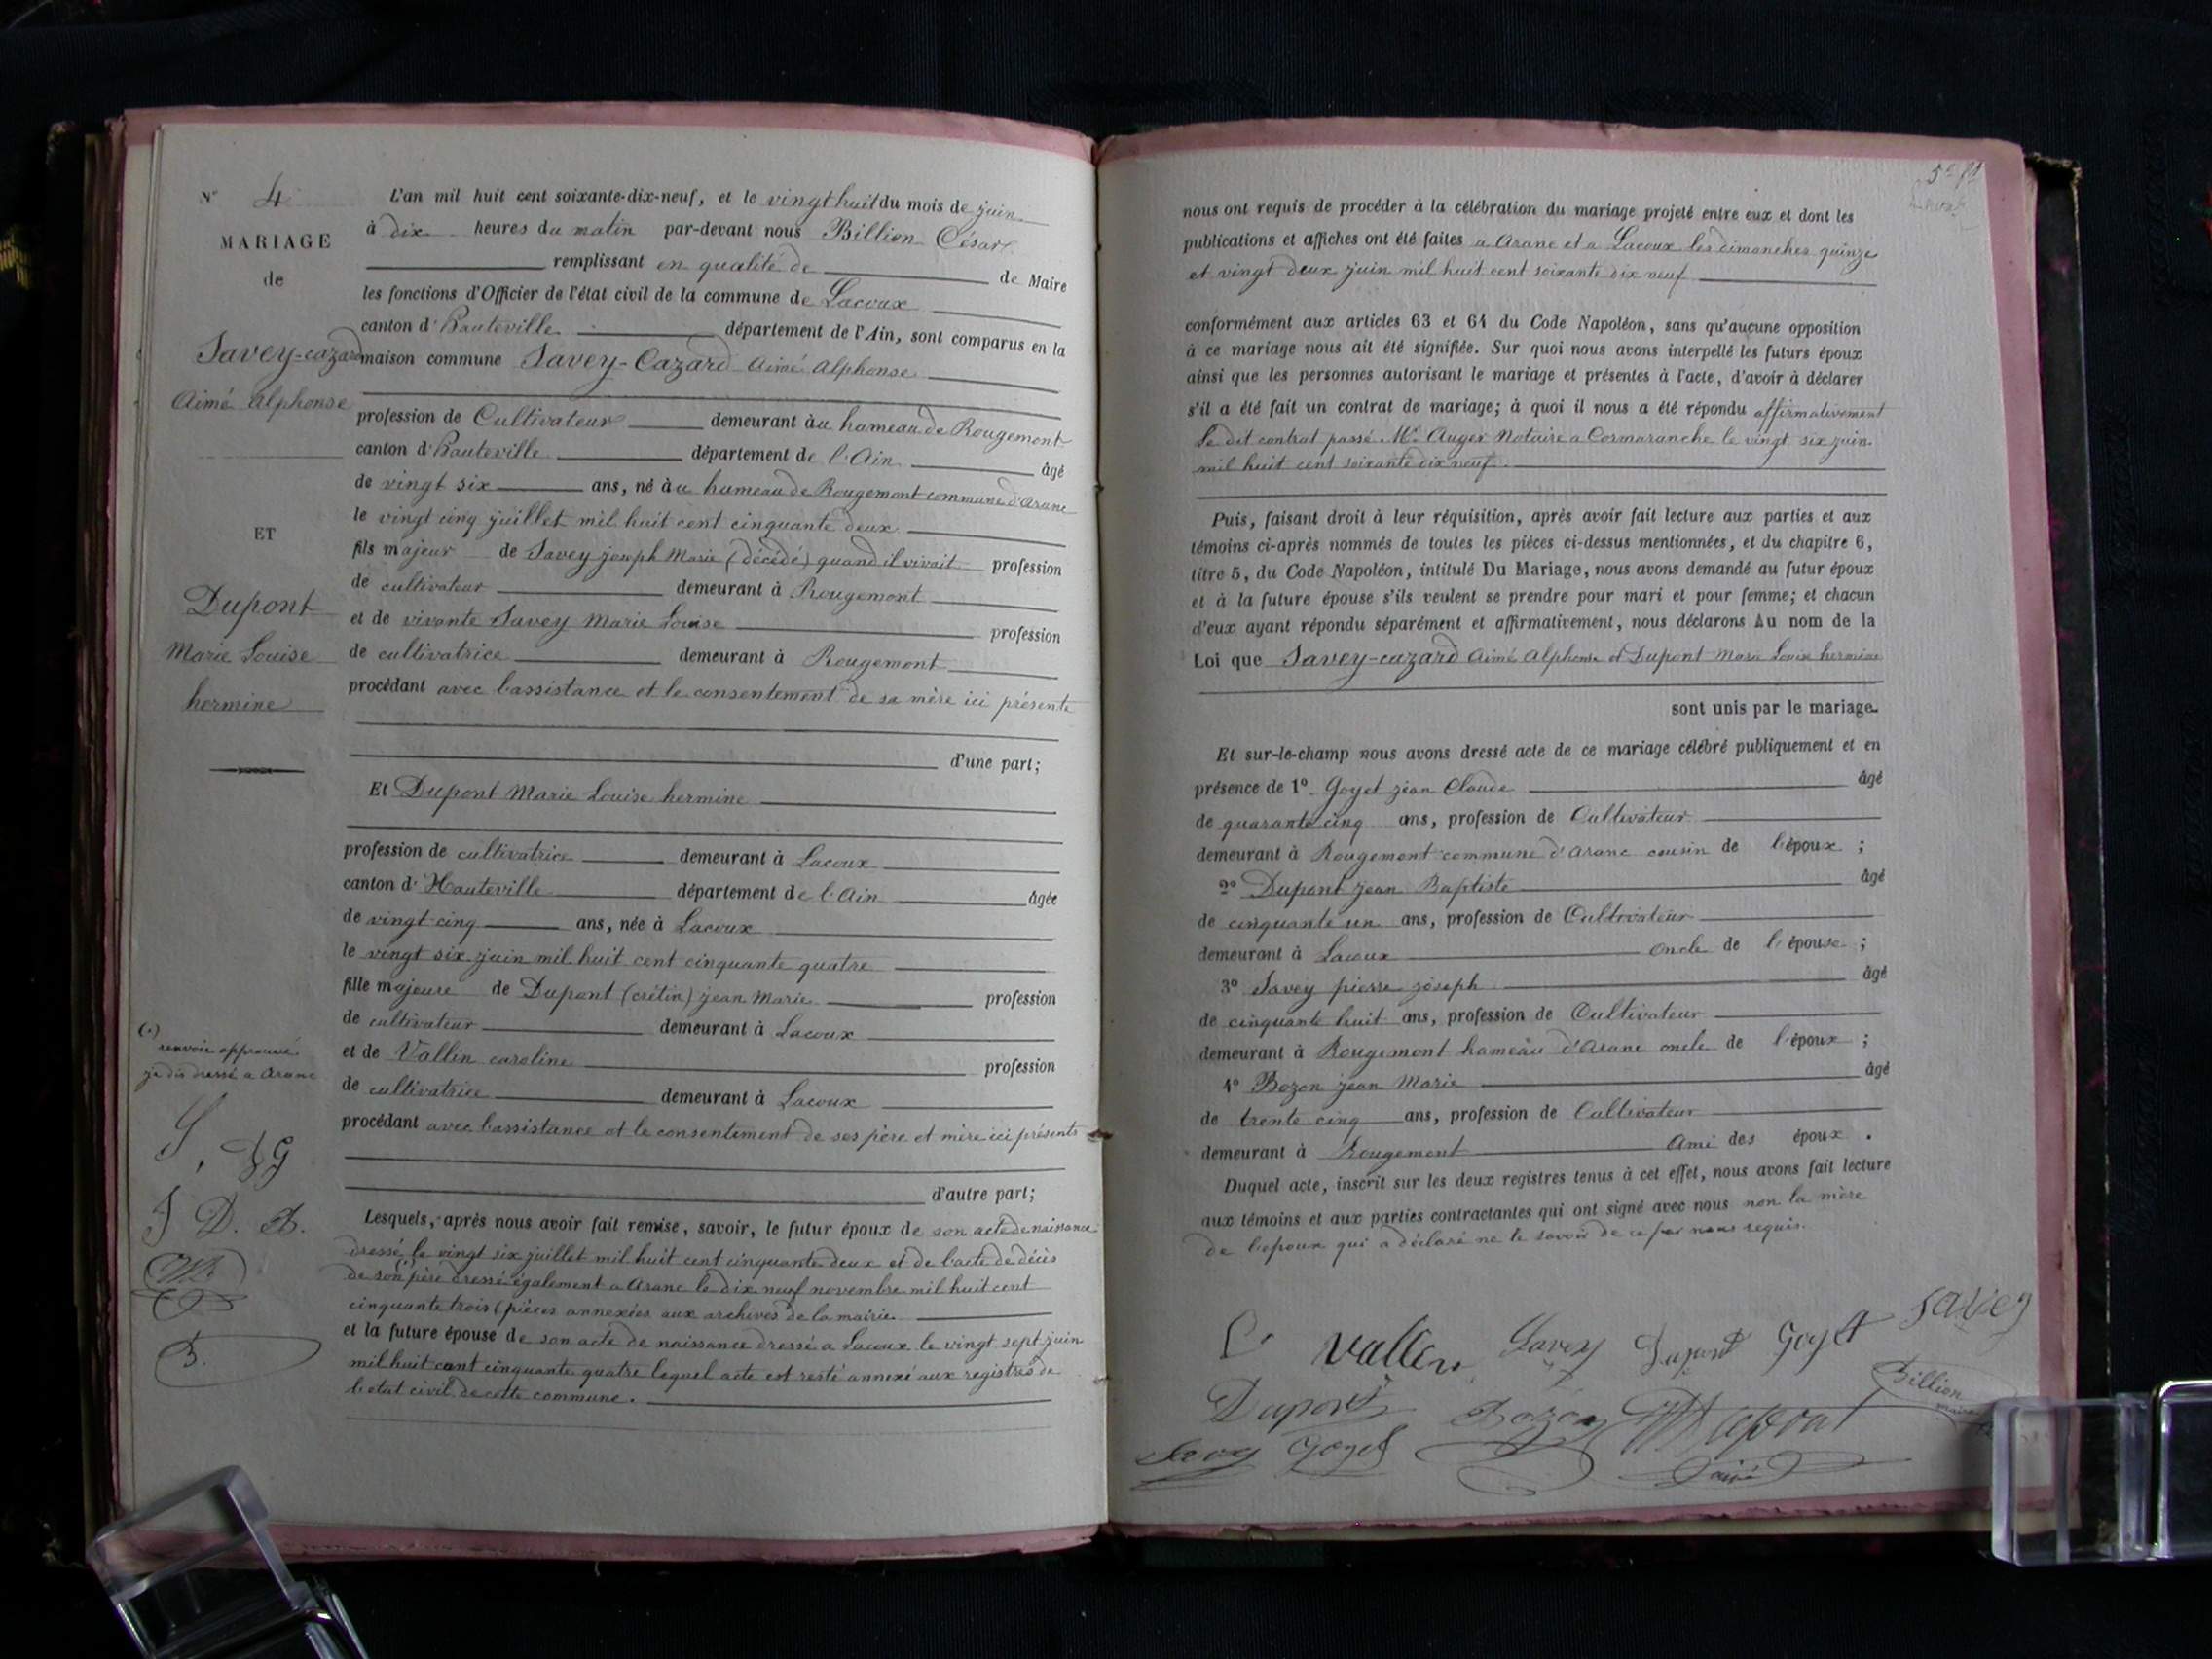 N° 4
MARIAGE
de
Savey-cazard
Aimé Alphonse
ET
Dupont
Marie Louise
hermine
(1)
renvoi approuvé
je dis dressé a Aranc
S, JG
J D. B.
B.
L'an mil huit cent soixante-dix-neuf, et le vingt huit du mois de juin
à dix heures du matin par-devant nous Billion César
remplissant en qualité de de Maire
les fonctions d'Officier de l'état civil de la commune de Lacoux
canton d'Hauteville département de l'Ain, sont comparus en la
maison commune Savey-Cazard Aimé Alphonse
profession de Cultivateur demeurant àu hameau de Rougemont
canton d'Hauteville département de l'Ain âgé
de vingt six ans, né àu hameau de Rougemont commune d'Aranc
le vingt cinq juillet mil huit cent cinquante deux
fils majeur de Savey joseph Marie (décédé) quand il vivait profession
de cultivateur demeurant à Rougemont
et de vivante Savey Marie Louise profession
de cultivatrice demeurant à Rougemont
procédant avec l'assistance et le consentement de sa mère ici présente
d'une part;
Et Dupont Marie Louise hermine
profession de cultivatrice demeurant à Lacoux
canton d'Hauteville département de l'Ain âgée
de vingt-cinq ans, née à Lacoux
le vingt six juin mil huit cent cinquante quatre
fille majeure de Dupont (crétin) jean Marie profession
de cultivateur demeurant à Lacoux
et de Vallin caroline profession
de cultivatrice demeurant à Lacoux
procédant avec l'assistance et le consentement de ses père et mère ici présents
d'autre part;
Lesquels, après nous avoir fait remise, savoir, le futur époux de son acte de naissance
dressé (1) le vingt six juillet mil huit cent cinquante deux et de l'acte de décès
de son père dressé également a Aranc le dix neuf novembre mil huit cent
cinquante trois (pièces annexées aux archives de la mairie
et la future épouse de son acte de naissance dressé a Lacoux le vingt sept juin
mil huit cent cinquante quatre lequel acte est resté annexé aux registres de
l'etat civil de cette commune.
nous ont requis de procéder à la célébration du mariage projeté entre eux et dont les
publications et affiches ont été faites a Aranc et a Lacoux les dimanches quinze
et vingt deux juin mil huit cent soixante dix neuf
conformément aux articles 63 et 64 du Code Napoléon, sans qu'aucune opposition
à ce mariage nous ait été signifiée. Sur quoi nous avons interpellé les futurs époux
ainsi que les personnes autorisant le mariage et présentes à l'acte, d'avoir à déclarer
s'il a été fait un contrat de mariage; à quoi il nous a été répondu affirmativement
Le dit contrat passé Me Auger Notaire a Cormaranche le vingt six juin
mil huit cent soixante dix neuf.
Puis, faisant droit à leur réquisition, après avoir fait lecture aux parties et aux
témoins ci-après nommés de toutes les pièces ci-dessus mentionnées, et du chapitre 6,
titre 5, du Code Napoléon, intitulé Du Mariage, nous avons demandé au futur époux
et à la future épouse s'ils veulent se prendre pour mari et pour femme; et chacun
d'eux ayant répondu séparément et affirmativement, nous déclarons Au nom de la
Loi que Savey-cazard Aimé Alphonse et Dupont Marie Louise hermine
sont unis par le mariage.
Et sur-le-champ nous avons dressé acte de ce mariage célébré publiquement et en
présence de 1° Goyet jean Claude âgé
de quarante cinq ans, profession de Cultivateur
demeurant à Rougemont commune d'Aranc cousin de l'époux ;
2° Dupont jean Baptiste âgé
de cinquante un ans, profession de Cultivateur
demeurant à Lacoux oncle de l'épouse ;
3° Savey pierre joseph âgé
de cinquante huit ans, profession de Cultivateur
demeurant à Rougemont hameau d'Aranc oncle de l'époux ;
4° Bozon jean Marie âgé
de trente cinq ans, profession de Cultivateur
demeurant à Rougemont Ami des époux .
Duquel acte, inscrit sur les deux registres tenus à cet effet, nous avons fait lecture
aux témoins et aux parties contractantes qui ont signé avec nous non la mère
de l'epoux qui a déclaré ne le savoir de ce par nous requis.
C. Vallin Savey Dupont Goyet Savey
Billion
maire
Dupont Bozon Dupont
Savey Goyet ainé